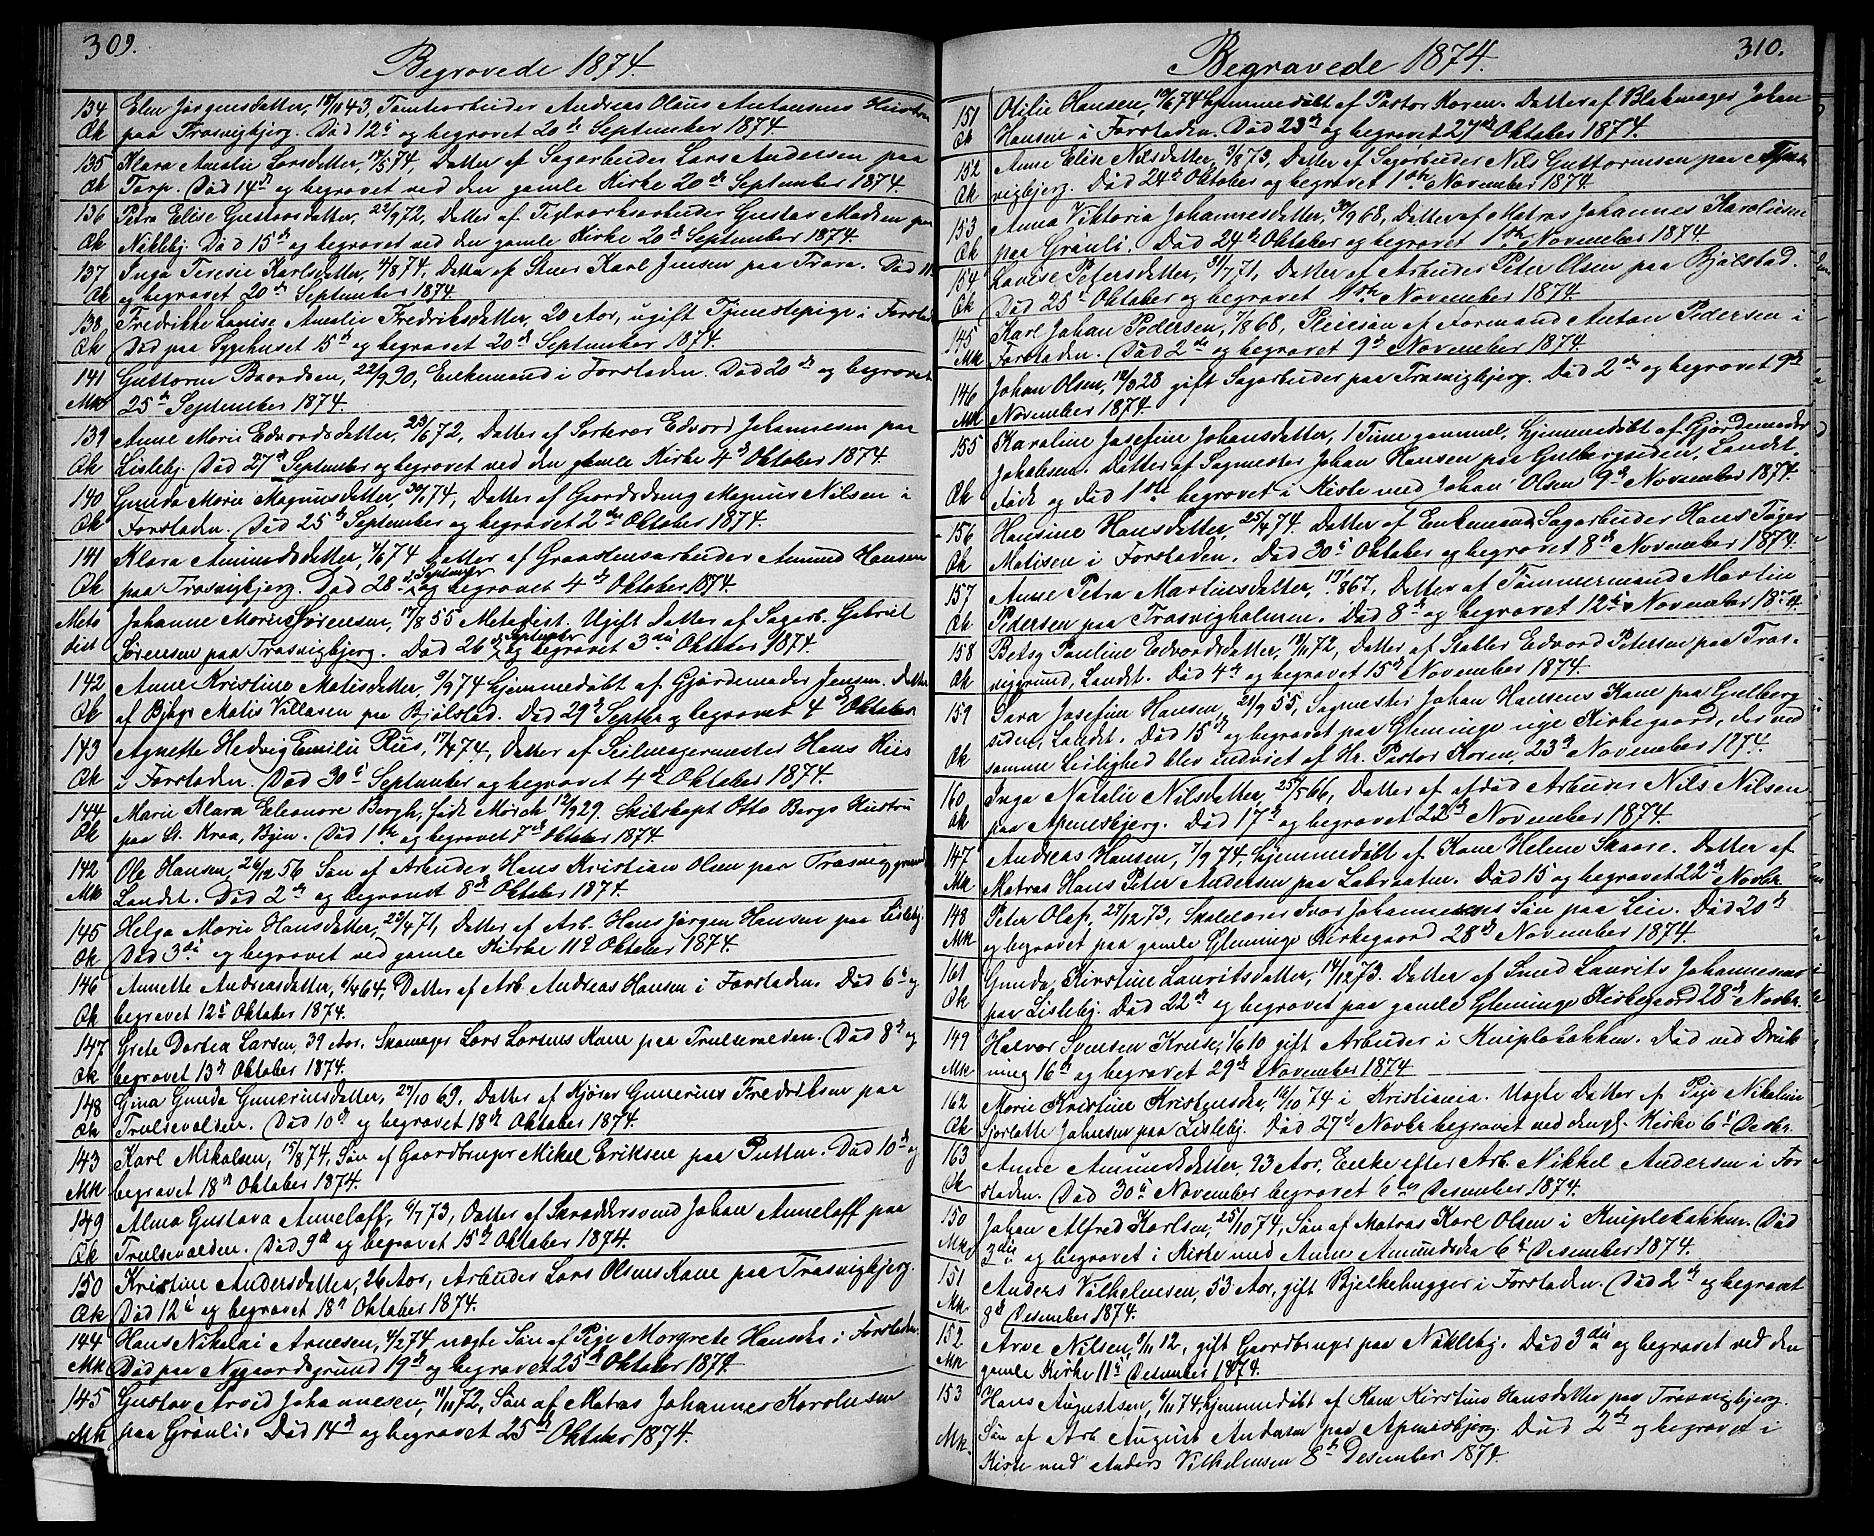 309.
Begravede 1874.
134 Elen Jørgensdatter, 19/11 43, Tomtearbeider Andreas Olaus Antonsens Hustru
Qk paa Trosvigbjerg. Død 12te og begravet 20de September 1874.
135 Klara Amalie Larsdatter, 17/5 74, Datter af Sagarbeider Lars Andersen paa
Qk Torp. Død 14de og begravet ved den gamle Kirke 20de September 1874.
136 Petra Elise Gustavsdatter, 22/9 72, Datter af Teglværksarbeider Gustav Madsen paa
Qk Nøkleby. Død 15de og begravet ved den gamle Kirke 20de September 1874.
137 Inga Teresie Karlsdatter, 4/8 74, Datter af Stuer Karl Jensen paa Trara. Død 11
Qk og begravet 20de September 1874.
138 Fredrikke Lovise Amalie Fredriksdatter, 20 Aar, ugift Tjenestepige i Forstaden
Qk Død paa Sygehuset 15de og begravet 20de September 1874.
141 Guttorm Baardsen, 22/9 90, Enkemand i Forstaden. Død 20de og begravet
Mk 25de September 1874.
139 Anne Marie Edvardsdatter, 23/6 72, Datter af Sorterer Edvard Johannesen paa
Qk Lisleby. Død 27de September og begravet ved den gamle Kirke 4de Oktober 1874.
140 Gunda Marie Magnusdatter, 30/1 74, Datter af Gaardsdreng Magnus Nilsen i
Qk Forstaden. Død 25de September og begravet 2den Oktober 1874.
141 Klara Amundsdatter, 4/6 74, Datter af Graastensarbeider Amund Hansen
Qk paa Trosvigbjerg. Død 28de September og begravet 4de Oktober 1874.
Meto Johanne Marie Sørensen, 17/8 55 Metodist. Ugift Datter af Sagarb. Gabriel
dist Sørensen paa Trosvigbjerg. Død 26de September og begravet 3die Oktober 1874.
142 Anne Kristine Matisdatter, 9/9 74 hjemmedøbt af Gjordemoder Jensen. Datter
Qk af Matis Villasen paa Bjølstad. Død 29de Septer og begravet 4de Oktober
143 Agnette Hedvig Emilie Riis, 17/4 74, Datter af Seilmagermester Hans Riis
Qk i Forstaden. Død 30te September og begravet 4de Oktober 1874.
144 Marie Klara Eleonore Bergh, født Mørch 12/9 29. Skibskapt Otto Berg's Hustru
Qk paa St. Kraa, Byen. Død 1ste og begravet 7de Oktober 1874.
142 Ole Hansen, 26/12 56 Søn af Arbeider Hans Kristian Olsen paa Trosviggrund
Mk Landet. Død 2de og begravet 8de Oktober 1874.
145 Helga Marie Hansdatter, 23/4 71, Datter af Arb. Hans Jørgen Hansen paa Lisleby.
Qk Død 3die og begravet ved gamle Kirke 11te Oktober 1874.
146 Annette Andreasdatter, 6/4 64, Datter af Arb. Andreas Hansen i Forstaden. Død 6te og
Qk begravet 12te Oktober 1874.
147 Grete Dortea Larsen, 39 Aar. Skomager Lars Larsens Kone paa Trulsevolden. Død 8de og
Qk begravet 13de Oktober 1874.
148 Gina Gunda Gunerinsdatter, 27/10 69. Datter af Kjører Gunerius Fredriksen paa
Qk Trulsevolden. Død 10de og begravet 18de Oktober 1874.
143 Karl Mikalsen, 15/8 74, Søn af Gaardbruger Mikal Eriksen paa Putten. Død 10de og
Mk begravet 18de Oktober 1874.
149 Alma Gustava Anneloff, 6/7 73, Datter af Skræddersvend Johan Anneloff paa
Qk Trulsevolden. Død 9de og begravet 15de Oktober 1874.
150 Kristine Andersdatter, 26 Aar, Arbeider Lars Olsens Kone paa Trosvigbjerg.
Qk Død 12te og begravet 18de Oktober 1874.
144 Hans Nikolai Arnesen, 4/2 74 uægte Søn af Pige Margrete Hansdr i Forstaden.
Mk Død paa Nygaardsgrund 19de og begravet 25de Oktober 1874.
145 Gustav Arvid Johannesen, 11/11 72, Søn af Matros Johannes Karolusen
Mk paa Grønli. Død 14de og begravet 25de Oktober 1874.
310.
Begravede 1874.
151 Otilie Hansen, 10/6 74 hjemmedøbt af Pastor Koren. Datter af Blokmager Johan
Qk Hansen i Forstaden. Død 23de og begravet 27de Oktober 1874.
152 Anne Elise Nilsdatter, 3/8 73, Datter af Sagarbeider Nils Guttormsen paa Tros
Qk vigbjerg. Død 24de Oktober og begravet 1ste November 1874.
153 Anna Viktoria Johannesdatter, 30/9 68, Datter af Matros Johannes Karolusen
Qk paa Grønli. Død 24de Oktober og begravet 1ste November 1874.
154 Lovise Petersdatter, 31/7 71, Datter af Arbeider Peter Olsen paa Bjølstad.
Qk Død 25te Oktober og begravet 1ste November 1874.
145 Karl Johan Pedersen, 7/8 68, Pleiesøn af Formand Anton Pedersen i
Mk Forstaden. Død 2den og begravet 9de November 1874.
146 Johan Olsen, 12/8 28 gift Sagarbeider paa Trosvigbjerg. Død 2den og begravet 9de
Mk November 1874.
155 Karoline Josefine Johansdatter, 1 Time gammel, hjemmedøbt af Gjordemoder
Jakobsen. Datter af Sagmester Johan Hansen paa Gulbergsiden, Landet.
Qk født og død 1ste begravet i Kiste med Johan Olsen 9de November 1874.
156 Hansine Hansdatter, 25/4 74. Datter af Enkemand, Sagarbeider Hans Tøger
Qk Matisen i Forstaden. Død 30te Oktober og begravet 8de November 1874.
157 Anne Petra Martinsdatter, 19/1 867, Datter af Tømmermand Martin
Qk Pedersen paa Trosvigholmen. Død 8de og begravet 12te November 1874.
158 Betsy Pauline Edvardsdatter, 18/1 72, Datter af Stabler Edvard Petersen paa Tros-
Qk viggrund, Landet. Død 4de og begravet 15de November 1874.
159 Sara Josefine Hansen, 21/9 55, Sagmester Johan Hansens Kone paa Gulberg
siden, Landet. Død 15de og begravet paa Glemminge nye Kirkegaard, der ved
Qk samme Leilighed blev indviet af Hr. Pastor Koren, 23de November 1874.
160 Inga Natalie Nilsdatter, 25/5 66, Datter af afdød Arbeider Nils Nilsen
Qk paa Apenesbjerg. Død 17de og begravet 22de November 1874.
147 Andreas Hansen, 7/9 74. hjemmedøbt af Kone Helene Skaare. Datter af
Mk Matros Hans Peter Andersen paa Labraaten. Død 15 og begravet 22de Novbr.
148 Peter Olaf, 27/12 73, Skolelærer Ivar Johannesens Søn paa Leie. Død 20de
Mk og begravet paa gamle Glemminge Kirkegaard 28de November 1874.
161 Gunda Kirstine Lauritsdatter, 14/12 73. Datter af Smed Laurits Johannesen
Qk paa Lisleby. Død 22de og begravet paa gamle Glemminge Kirkegaard 28de Novbr.
149 Halvor Svensen Kruse, 1/6 10 gift Arbeider i Kniplebakken. Død ved Druk-
Mk ning 16de og begravet 29de November 1874
162 Marie Kristine Kristensdr, 16/10 74 i Kristiania. Uægte Datter af Pige Nikoline
Qk Sjarlotte Johnsen paa Lisleby. Død 27de Novbr begravet ved den gl. Kirke 6te Desbr.
163 Anne Amundsdatter, 93 Aar, Enke efter Arb. Nikkel Andersen i For
Qk staden. Død 30te November begravet 6te Desember 1874.
150 Johan Alfred Karlsen, 25/10 74, Søn af Matros Karl Olsen i Kniplebakken. Død
Mk 3die og begravet i Kiste med Anne Amundsdr 6te Desember 1874.
151 Anders Vilhelmsen, 53 Aar, gift Bjelkehugger i Forstaden. Død 2de og begravet
Mk 8de Desember 1874.
152 Arve Nilsen, 9/11 12, gift Gaardbruger paa Nøkleby. Død 3die og begravet ved den
Mk gamle Kirke 11te Desember 1874.
153 Hans Augustsen, 6/11 74, hjemmedøbt af Kone Kirstine Hansdatter paa Trosvigbjerg.
Mk. Søn af Arb August Andersen paa Apenesbjerg. Død 2de og begravet i
Kiste med Anders Vilhelmsen 8de Desember 1874.